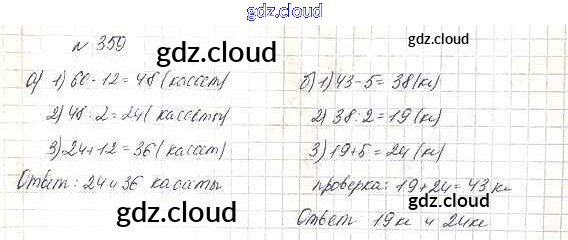 gdz.cloud
№ 359
gdz.cloud
gdz.cloud
а) 1) 60 - 12 = 48 (кассет)
2) 48 : 2 = 24 (кассеты)
3) 24 + 12 = 36 (кассет)
Ответ: 24 и 36 кассеты
б) 1) 43 - 5 = 38 (кг)
2) 38 : 2 = 19 (кг)
3) 19 + 5 = 24 (кг)
проверка: 19 + 24 = 43 кг
Ответ 19 кг и 24 кг
gdz.cloud
gdz.cloud
gdz.cloud
gdz.cloud